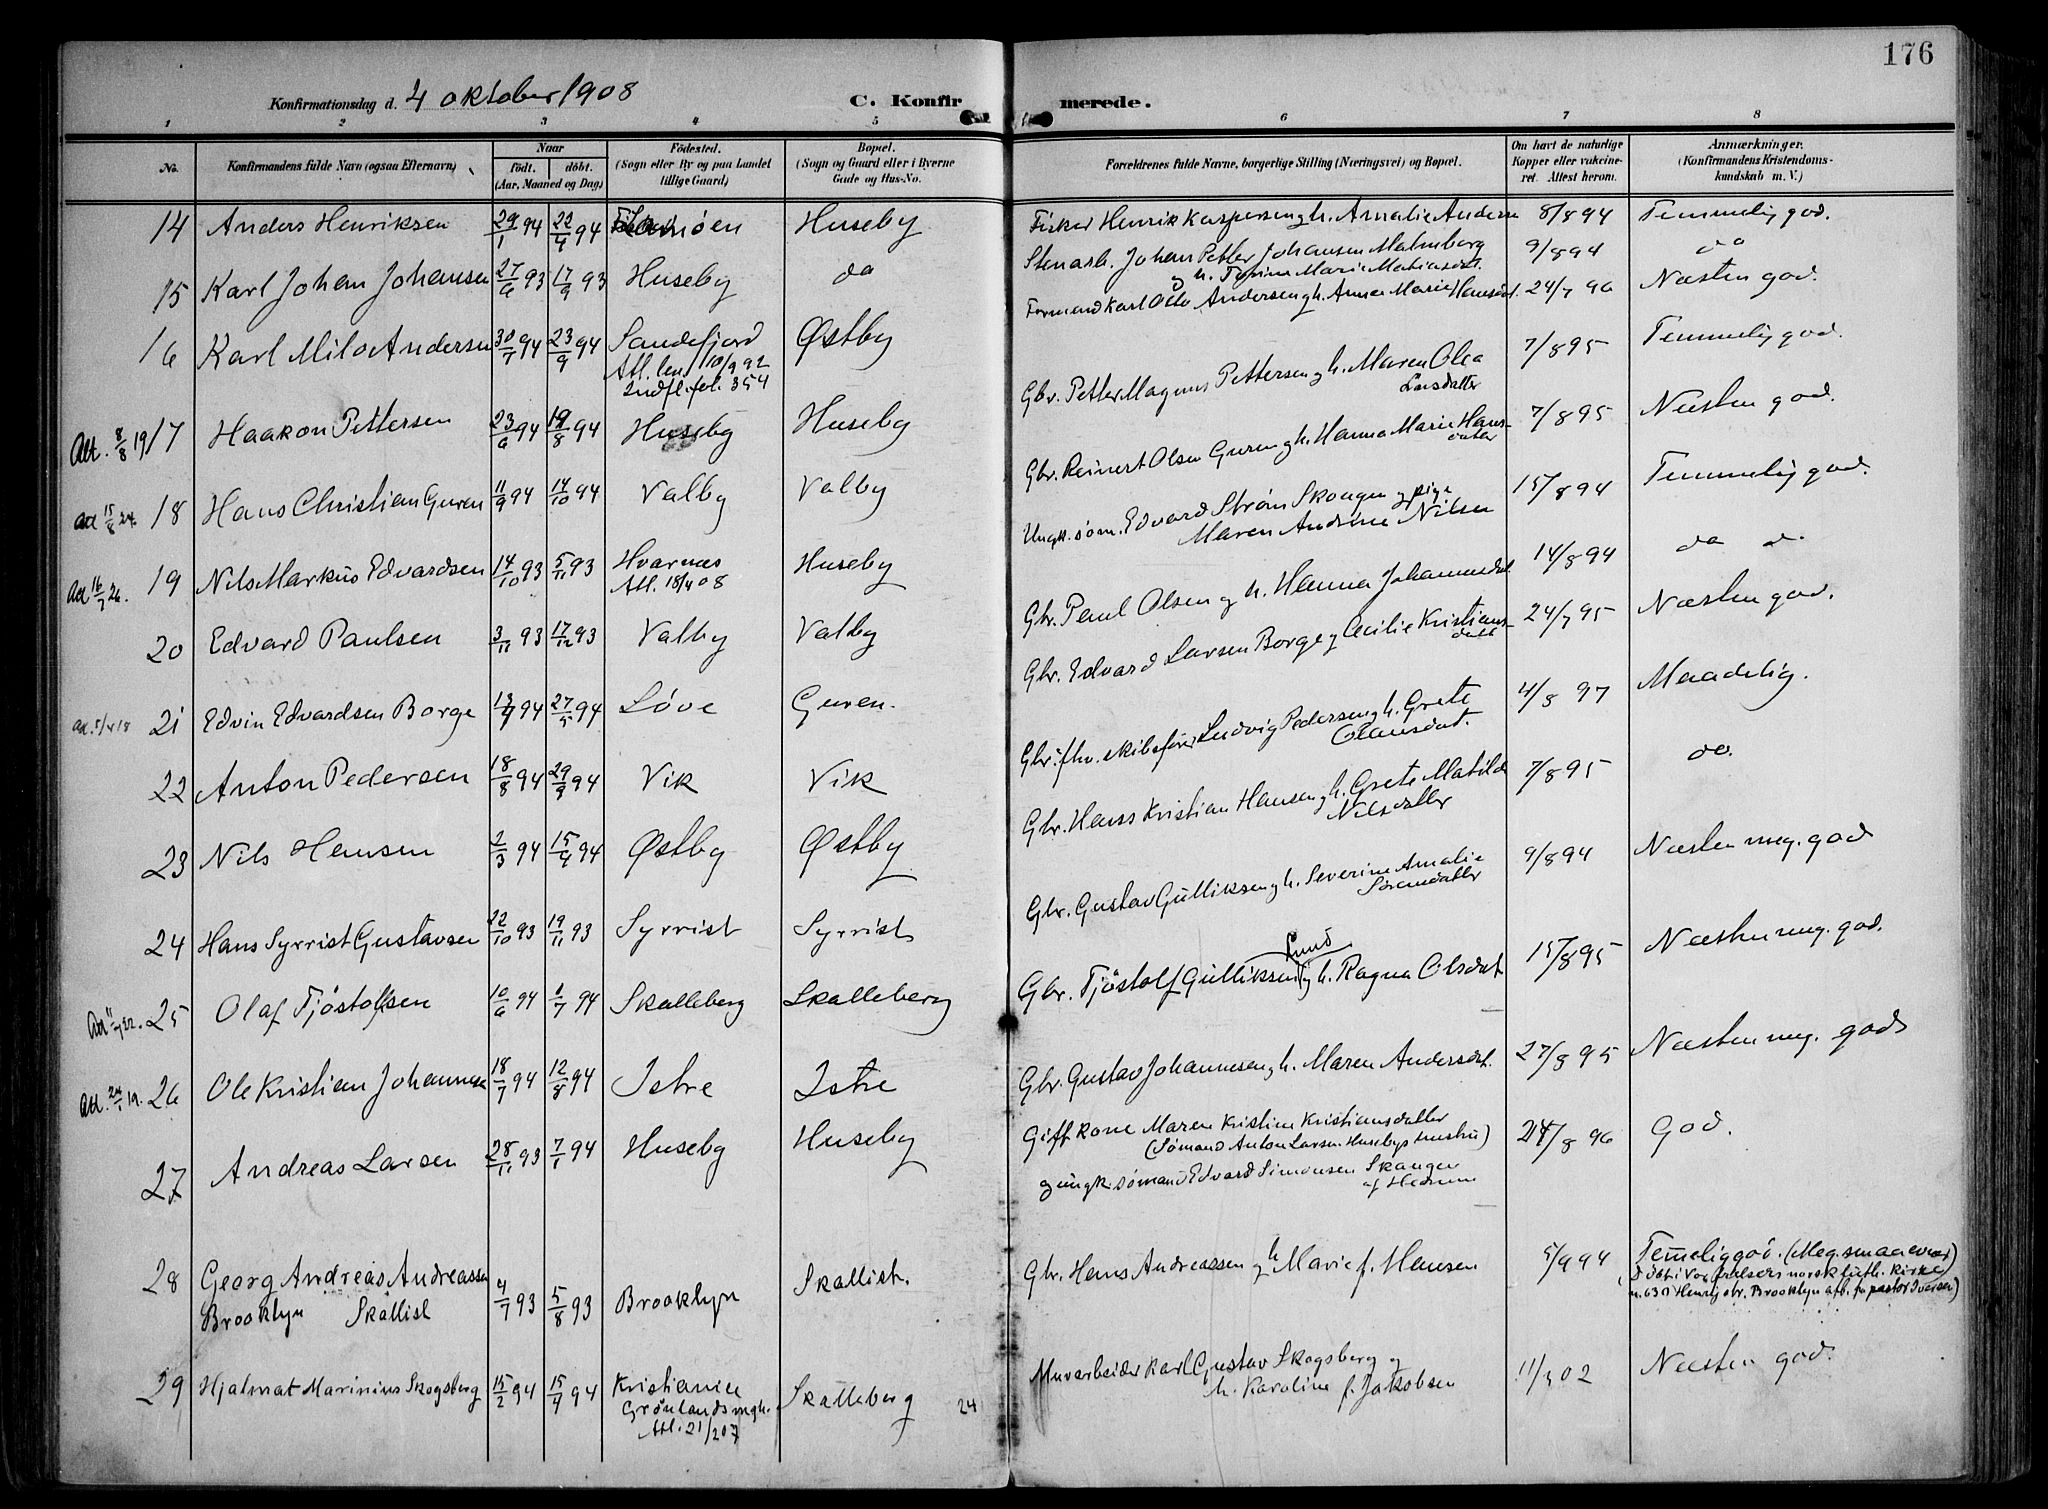 176
Konfirmationsdag d. 4 oktober 1908
C. Konfirmerede.
1 2 3 4 5 6 7 8
No. Konfirmandens fulde Navn (ogsaa Efternavn) Naar født. døbt. (Aar, Maaned og Dag) Fødested. (Sogn eller By og paa Landet tillige Gaard) Bopæl. (Sogn og Gaard eller i Byerne Gade og Hus-No. Forældrenes fulde Navne, borgerlige Stilling (Næringsvei) og Bopæl. Om havt de naturlige Kopper eller vakcineret. Attest herom. Anmærkninger. (Konfirmandens Kristendomskundskab m. V.)
14 Anders Henriksen 29/1 94 22/4 94 Huseby Fisker Henrik Kaspersen og h. Amalie Anders 8/8 94 Temmelig god.
15 Karl Johan Johansen 27/6 93 17/9 93 Huseby do Stenarb. Johan Petter Johansen Malmberg 9/8 94 do
og h. Marie Matiasdt.
16 Karl Milo Andersen 30/7 94 23/9 94 Sandefjord Østby Formand Karl Otto Andersen og h. Anna Marie Hansdt. 24/7 96 Næsten god.
Att. 10/9 92
Indfl. fol. 354
Att. 8/8 19 17 Haakon Pettersen 23/6 94 19/8 94 Huseby Huseby Gbr. Petter Magnus Pettersen og h. Maren Olea 7/8 95 Temmelig god.
Larsdatter
Att 15/8 24. 18 Hans Christian Guren 11/9 94 14/10 94 Valby Valby Gbr. Reinert Olsen Guren og h. Hanna Marie Hans- 7/8 95 Næsten god.
datter
Att 16/7 26. 19 Nils Markus Edvardsen 14/10 93 5/11 93 Hvarnes Huseby Ungk. søm. Edvard Strøm Skaugen og pige 15/8 94 Temmelig god.
Att. 18/4 08 Maren Andrine Nilsen
20 Edvard Paulsen 3/11 93 17/12 93 Valby Valby Gbr. Paul Olsen og h. Hanna Johannesdat. 14/8 94 do d.
At. 5/4 18 21 Edvin Edvardsen Borge 13/4 94 27/5 94 Løve Guren. Gbr. Edvard Larsen Borge og Cecilie Kristians- 24/7 95 Næsten god.
datt
22 Anton Pedersen 18/8 94 29/9 94 Vik Vik Gbr. fhv. skibsfører Ludvig Pedersen og h. Grete 4/8 97 Maadelig.
Clausdat.
23 Nils Hansen 2/3 94 15/4 94 Østby Østby Gbr. Hans Kristian Hansen og h. Grete Matilde 7/8 95 do.
Nilsdatter
24 Hans Syrrist Gustavsen 22/10 93 19/11 93 Syrrist Syrrist Gbr. Gustav Gulliksen og h. Severine Amalie 9/8 94 Næsten meg. god
Sørensdatter
25 Olaf Tjøstolfsen 10/6 94 1/7 94 Skalleberg Skalleberg Gbr. Tjøstolf Gulliksen Lund og h. Ragna Olsdat. 15/8 95 Næsten meg. god.
Att. 24/1 19. 26 Ole Kristian Johannesen 18/7 94 12/8 94 Istre Istre Gbr. Gustav Johannesen og h. Maren Andersdat. 27/8 95 Næsten meg. god
27 Andreas Larsen 28/11 93 7/1 94 Huseby Huseby Gift kone Maren Kristine Kristiansdatter 24/8 96 God.
(Sømand Anton Larsen Husebys hustru)
og ungk. sømand Edvard Simonsen Skaugen
af Hedrum
28 Georg Andreas Andreassen 4/7 93 5/8 93 Brooklyn Skallist. Gbr. Hans Andreassen og h. Marie f. Hansen 5/9 94 Temeliggod. (Meg. smaa evner)
Brooklyn Skallist
Døbt i Vor frelsers norsk luth. kirke
n. 630 Henry str. Brooklyn af pastor Iversen)
29 Hjalmat Marinius Skogsberg 15/2 94 15/4 94 Kristiania Skalleberg 24 Murarbeider Karl Gustav Skogsberg og 11/3 02 Næsten god.
Grønlands mgh. h. Karoline f. Jakobsen
Att. 21/2 07